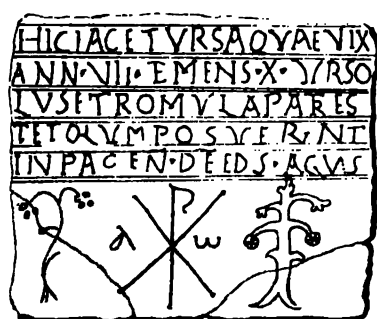 HICIACETVRSAQVAEVIX
ANN·VII·EMENS·X·VRSO
LVSETROMVLAPARES
TETOLVMPOSVERVNT
INPACEN·DEEDS·AGVS
α ☧ ω